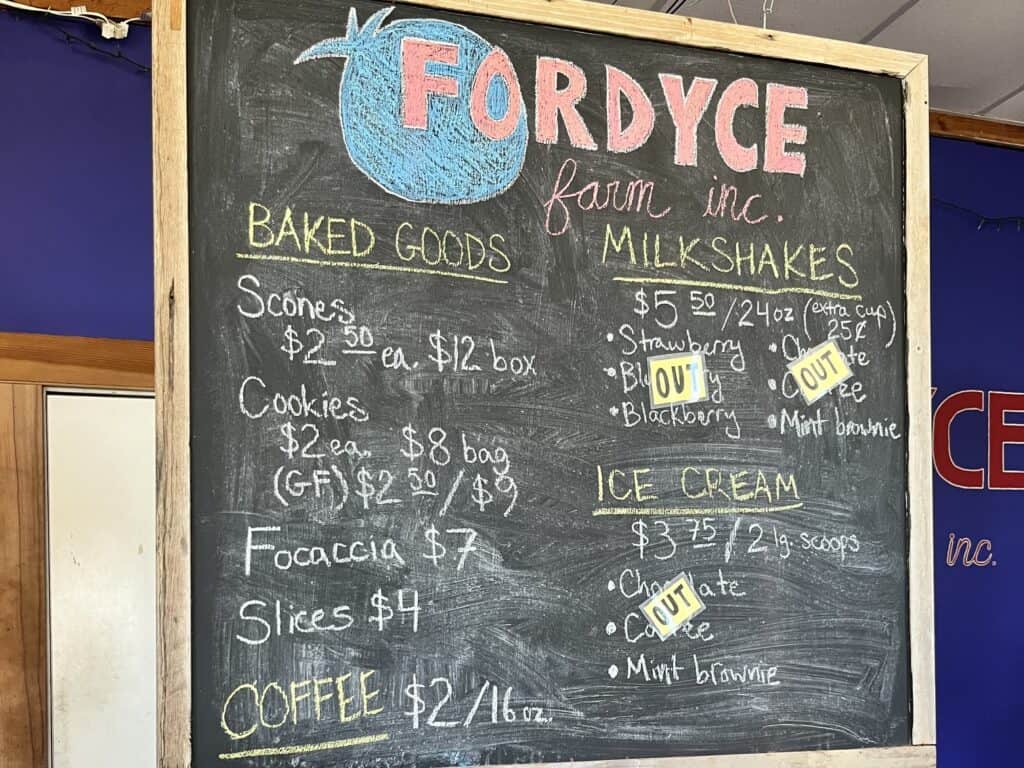 FORDYCE
farm inc.
BAKED GOODS
Scones
$2 50 ea. $12 box
Cookies
$2 ea. $8 bag
(GF) $2 50 / $9
Focaccia $7
Slices $4
COFFEE $2/16 oz.
MILKSHAKES
$5 50 /24oz (extra cup 25¢)
• Strawberry
• OUT
• Blackberry
• OUT
•
• Mint brownie
ICE CREAM
$3 75 / 2 lg. scoops
• Chocolate
OUT
• Coffee
• Mint brownie
CE
inc.